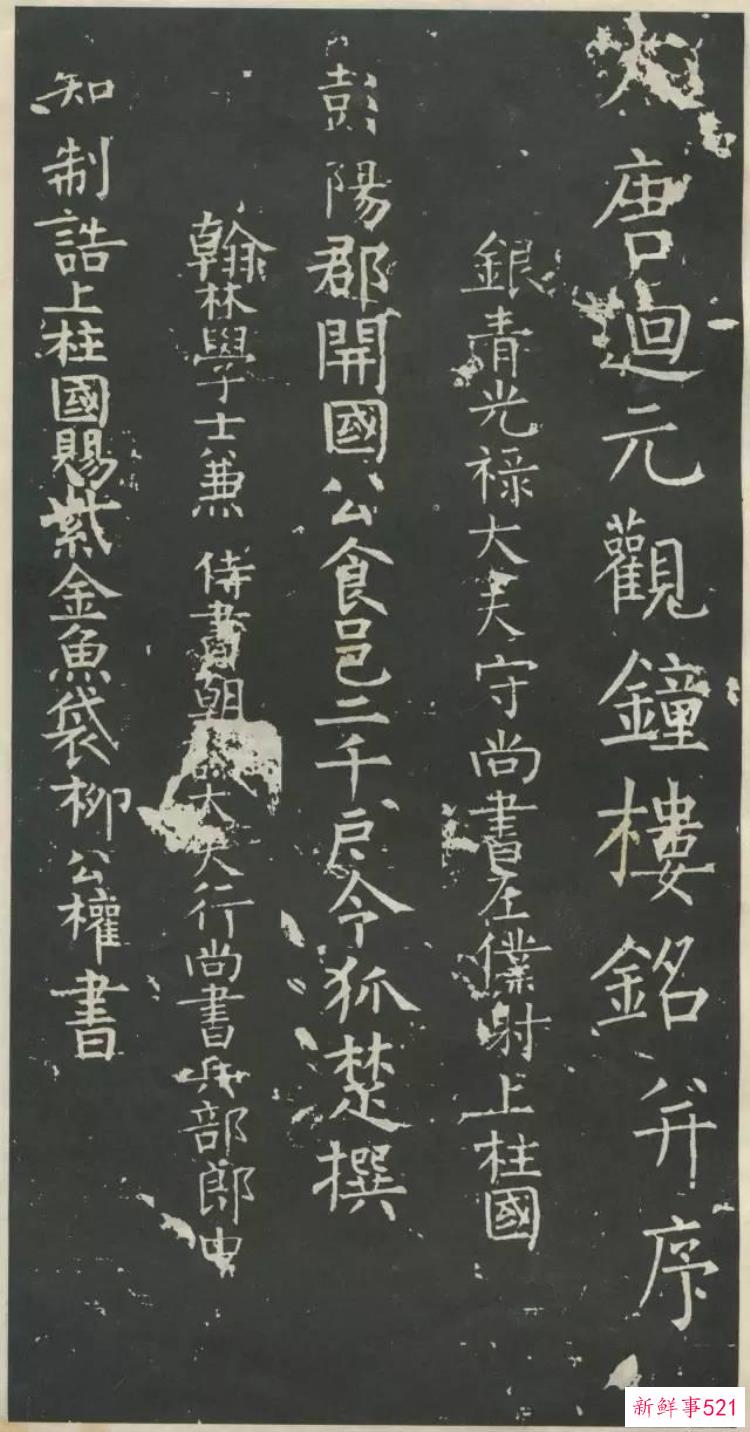 大唐迴元觀鐘樓銘并序
銀青光祿大夫守尚書左僕射上柱國
彭陽郡開國公食邑二千戶令狐楚撰
翰林學士兼侍書朝議大夫行尚書兵部郎中
知制誥上柱國賜紫金魚袋柳公權書
新鲜事521